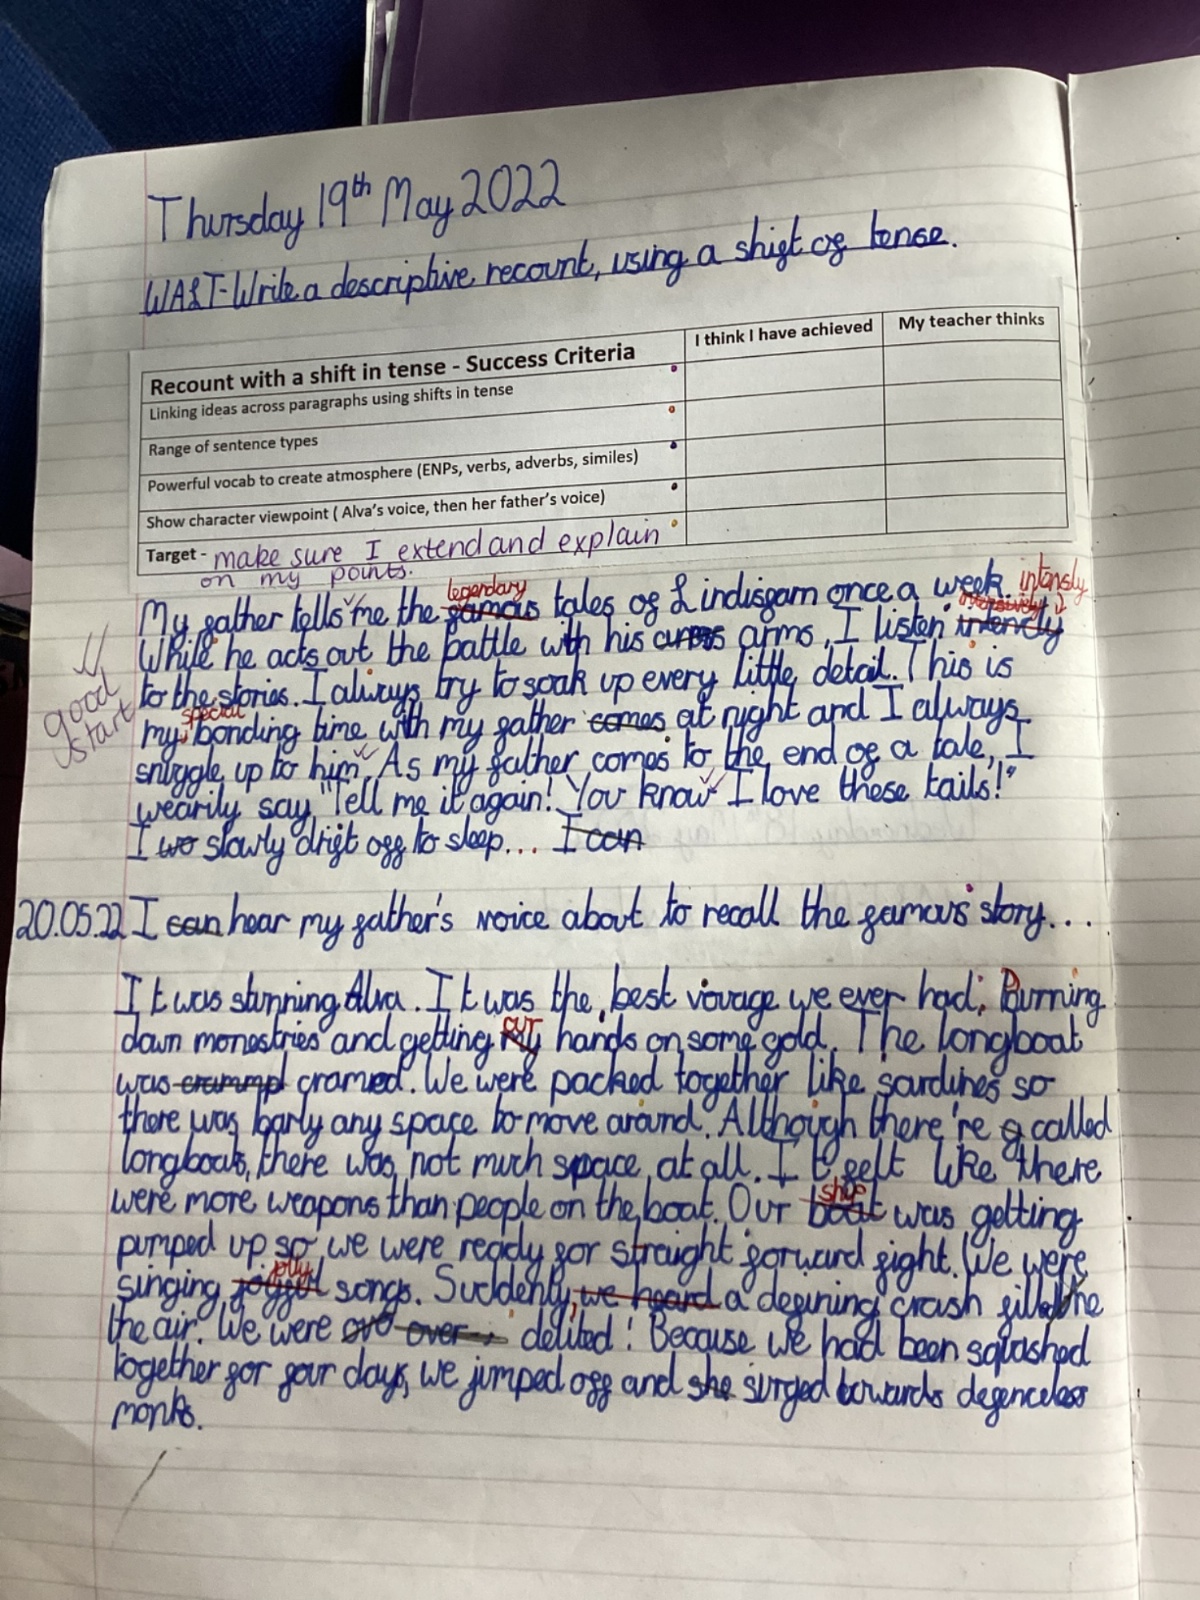 Thursday 19th May 2022
WALT-Write a descriptive recount, using a shift of tense.
Recount with a shift in tense - Success Criteria
I think I have achieved
My teacher thinks
Linking ideas across paragraphs using shifts in tense
Range of sentence types
Powerful vocab to create atmosphere (ENPs, verbs, adverbs, similes)
Show character viewpoint ( Alva's voice, then her father's voice)
Target - make sure I extend and explain
on my points.
legendary
intensly
My father tells me the famous tales of Lindisfarn once a week.
While he acts out the battle with his arms, I listen
good
start
to the stories. I always try to soak up every little detail. This is
special
my bonding time with my father comes at night and I always
snuggle up to him. As my father comes to the end of a tale, I
wearily say, "Tell me it again! You know I love these tails!"
I slowly drift off to sleep... I can
20.05.22 I can hear my father's voice about to recall the famous story...
It was stunning Alva. It was the best voyage we ever had; Burning
our
down monestries and getting hands on some gold. The longboat
was cramed. We were packed together like sardines so
there was barly any space to move around. Although there're called
longboats, there was not much space at all. It felt like there
were more weapons than people on the boat. Our boat was getting
ship
pumped up so we were ready for straight forward fight. We were
jolly
singing joyful songs. Suddenly, we heard a defining crash filled the
the air. We were over delited! Because we had been squashed
together for four days, we jumped off and she surged towards defenceless
monks.